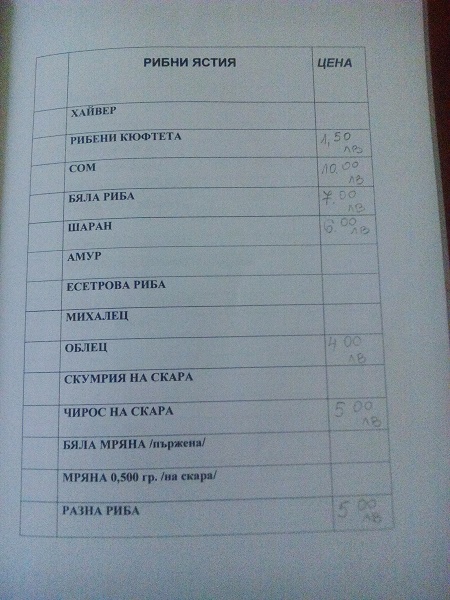 РИБНИ ЯСТИЯ ЦЕНА
ХАЙВЕР
РИБЕНИ КЮФТЕТА 1,50 ЛВ
СОМ 10.00 ЛВ
БЯЛА РИБА 7.00 ЛВ
ШАРАН 6.00 ЛВ
АМУР
ЕСЕТРОВА РИБА
МИХАЛЕЦ
ОБЛЕЦ 4 00 ЛВ
СКУМРИЯ НА СКАРА
ЧИРОС НА СКАРА 5 00 ЛВ
БЯЛА МРЯНА /пържена/
МРЯНА 0,500 гр. /на скара/
РАЗНА РИБА 5 00 ЛВ